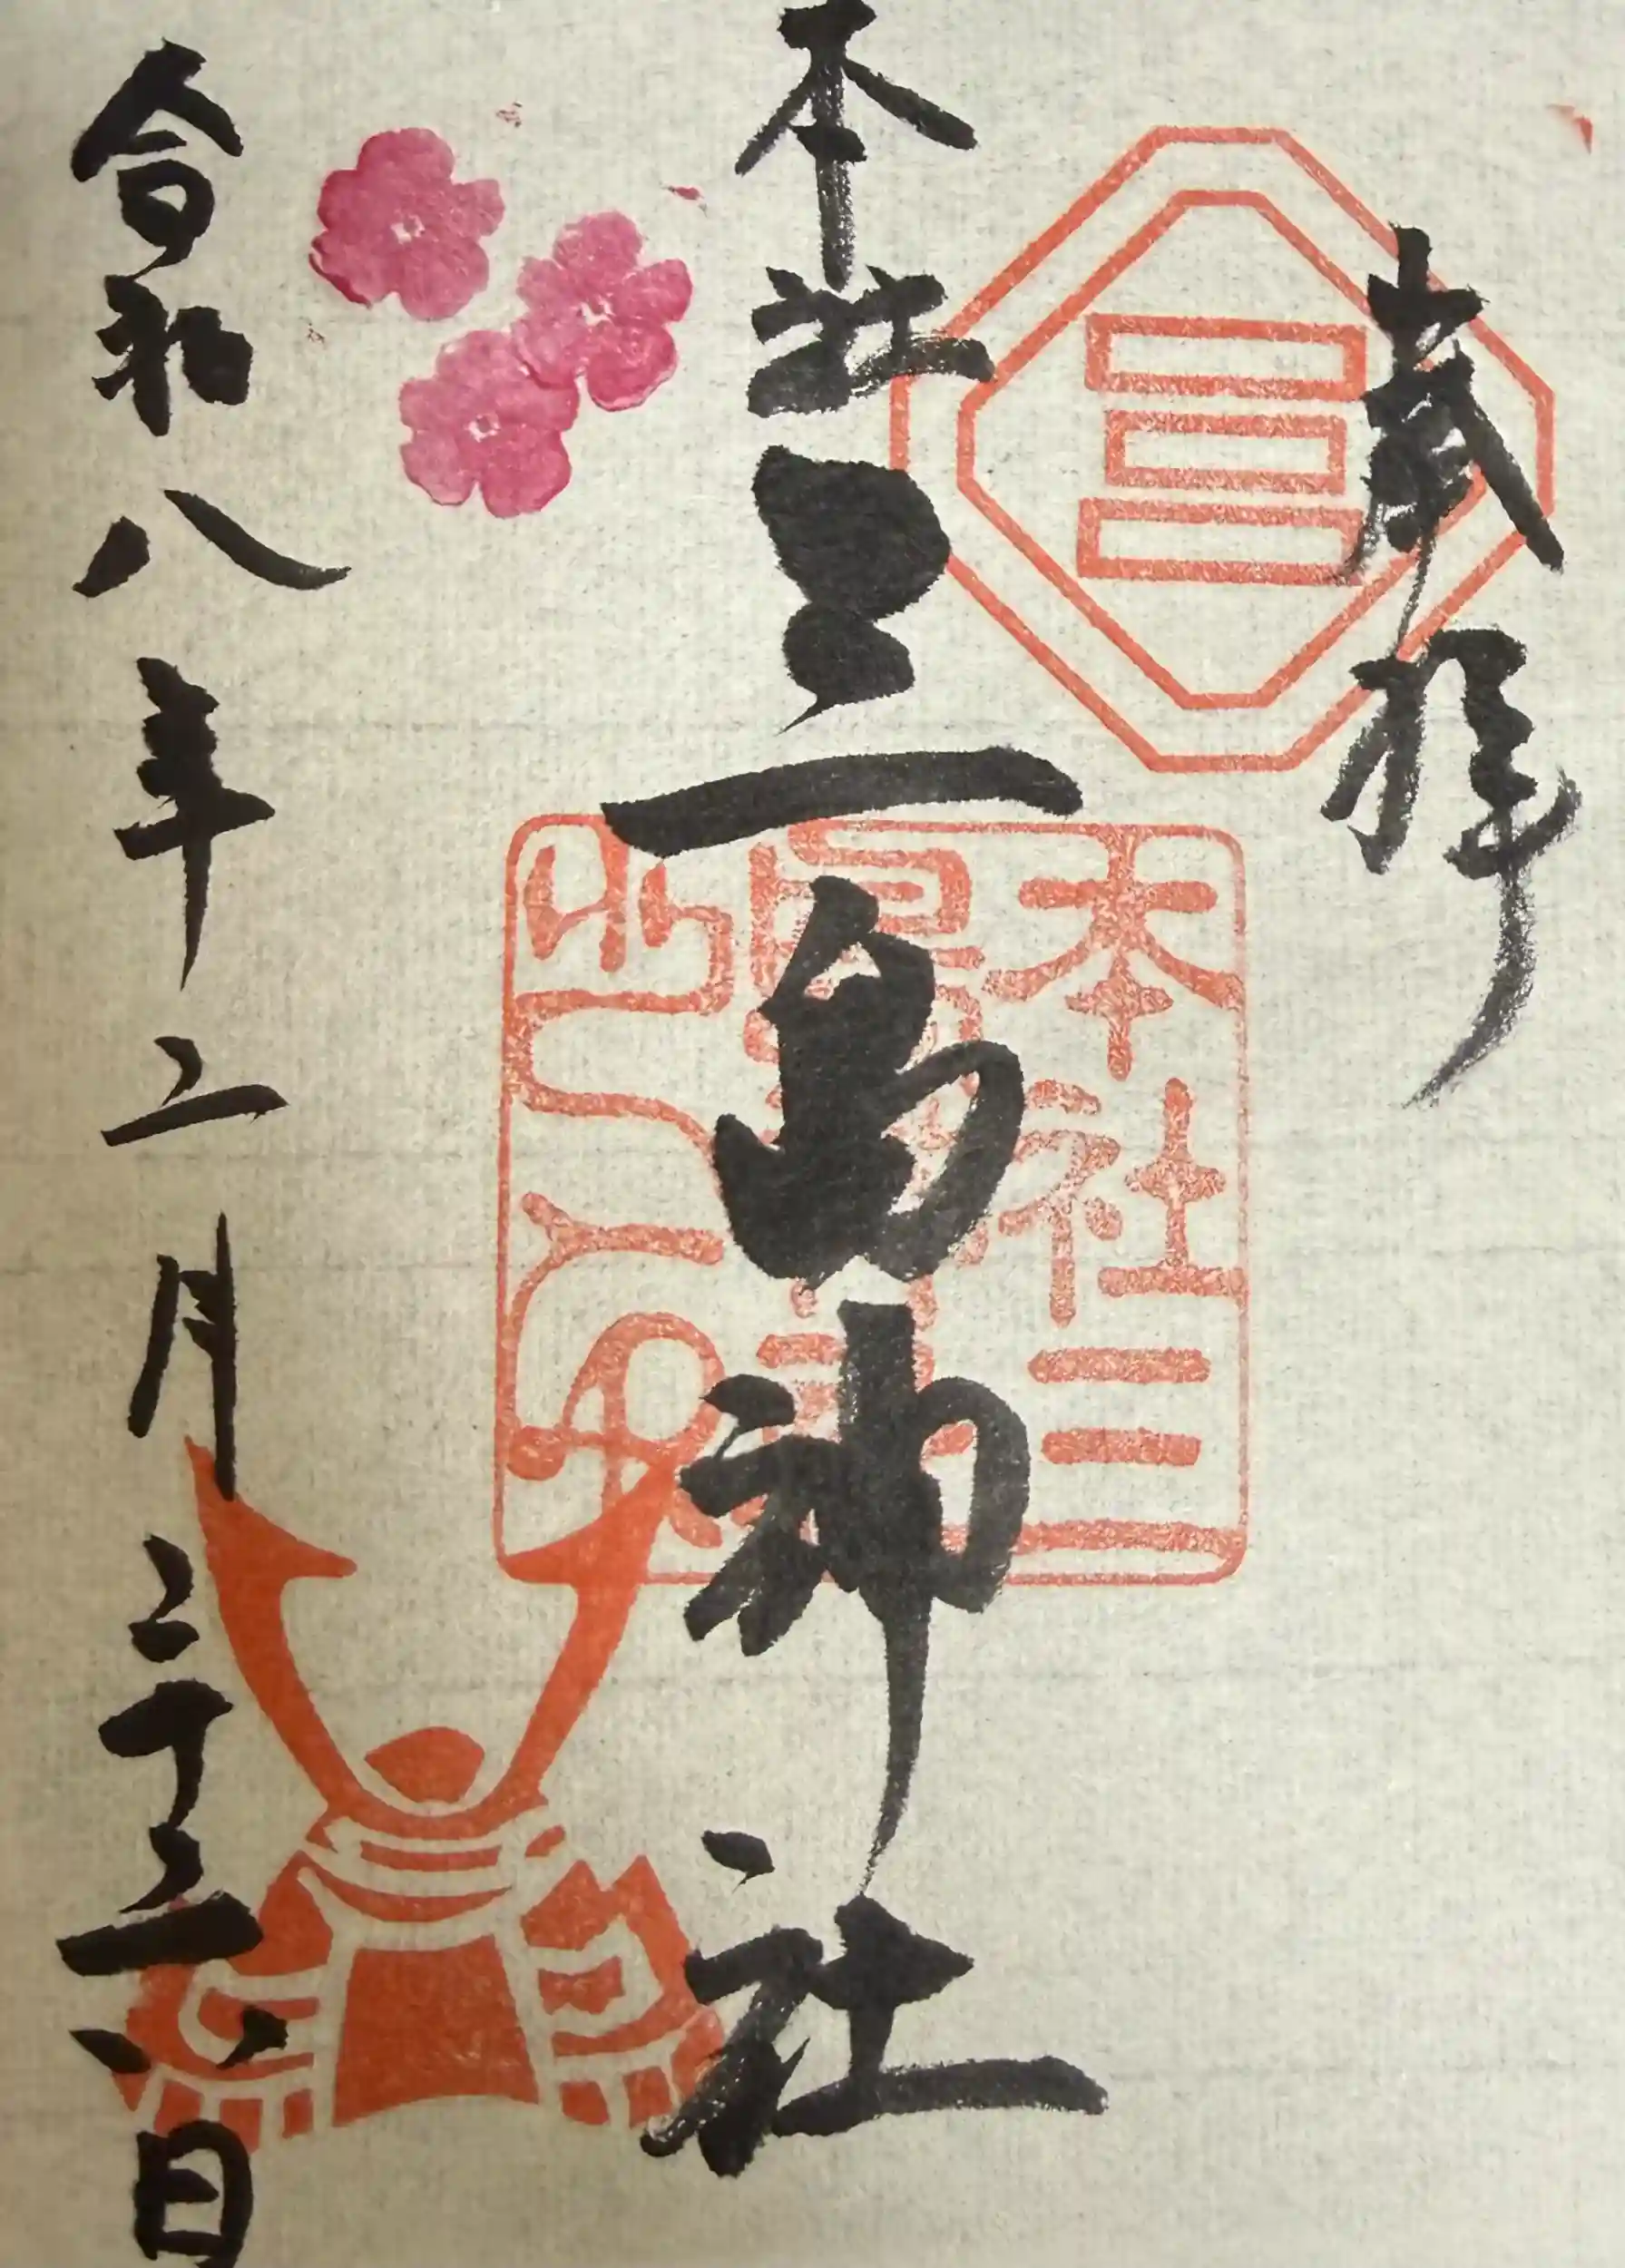 奉拝
本社三島神社
令和八年二月二十六日
三
本社三
之印